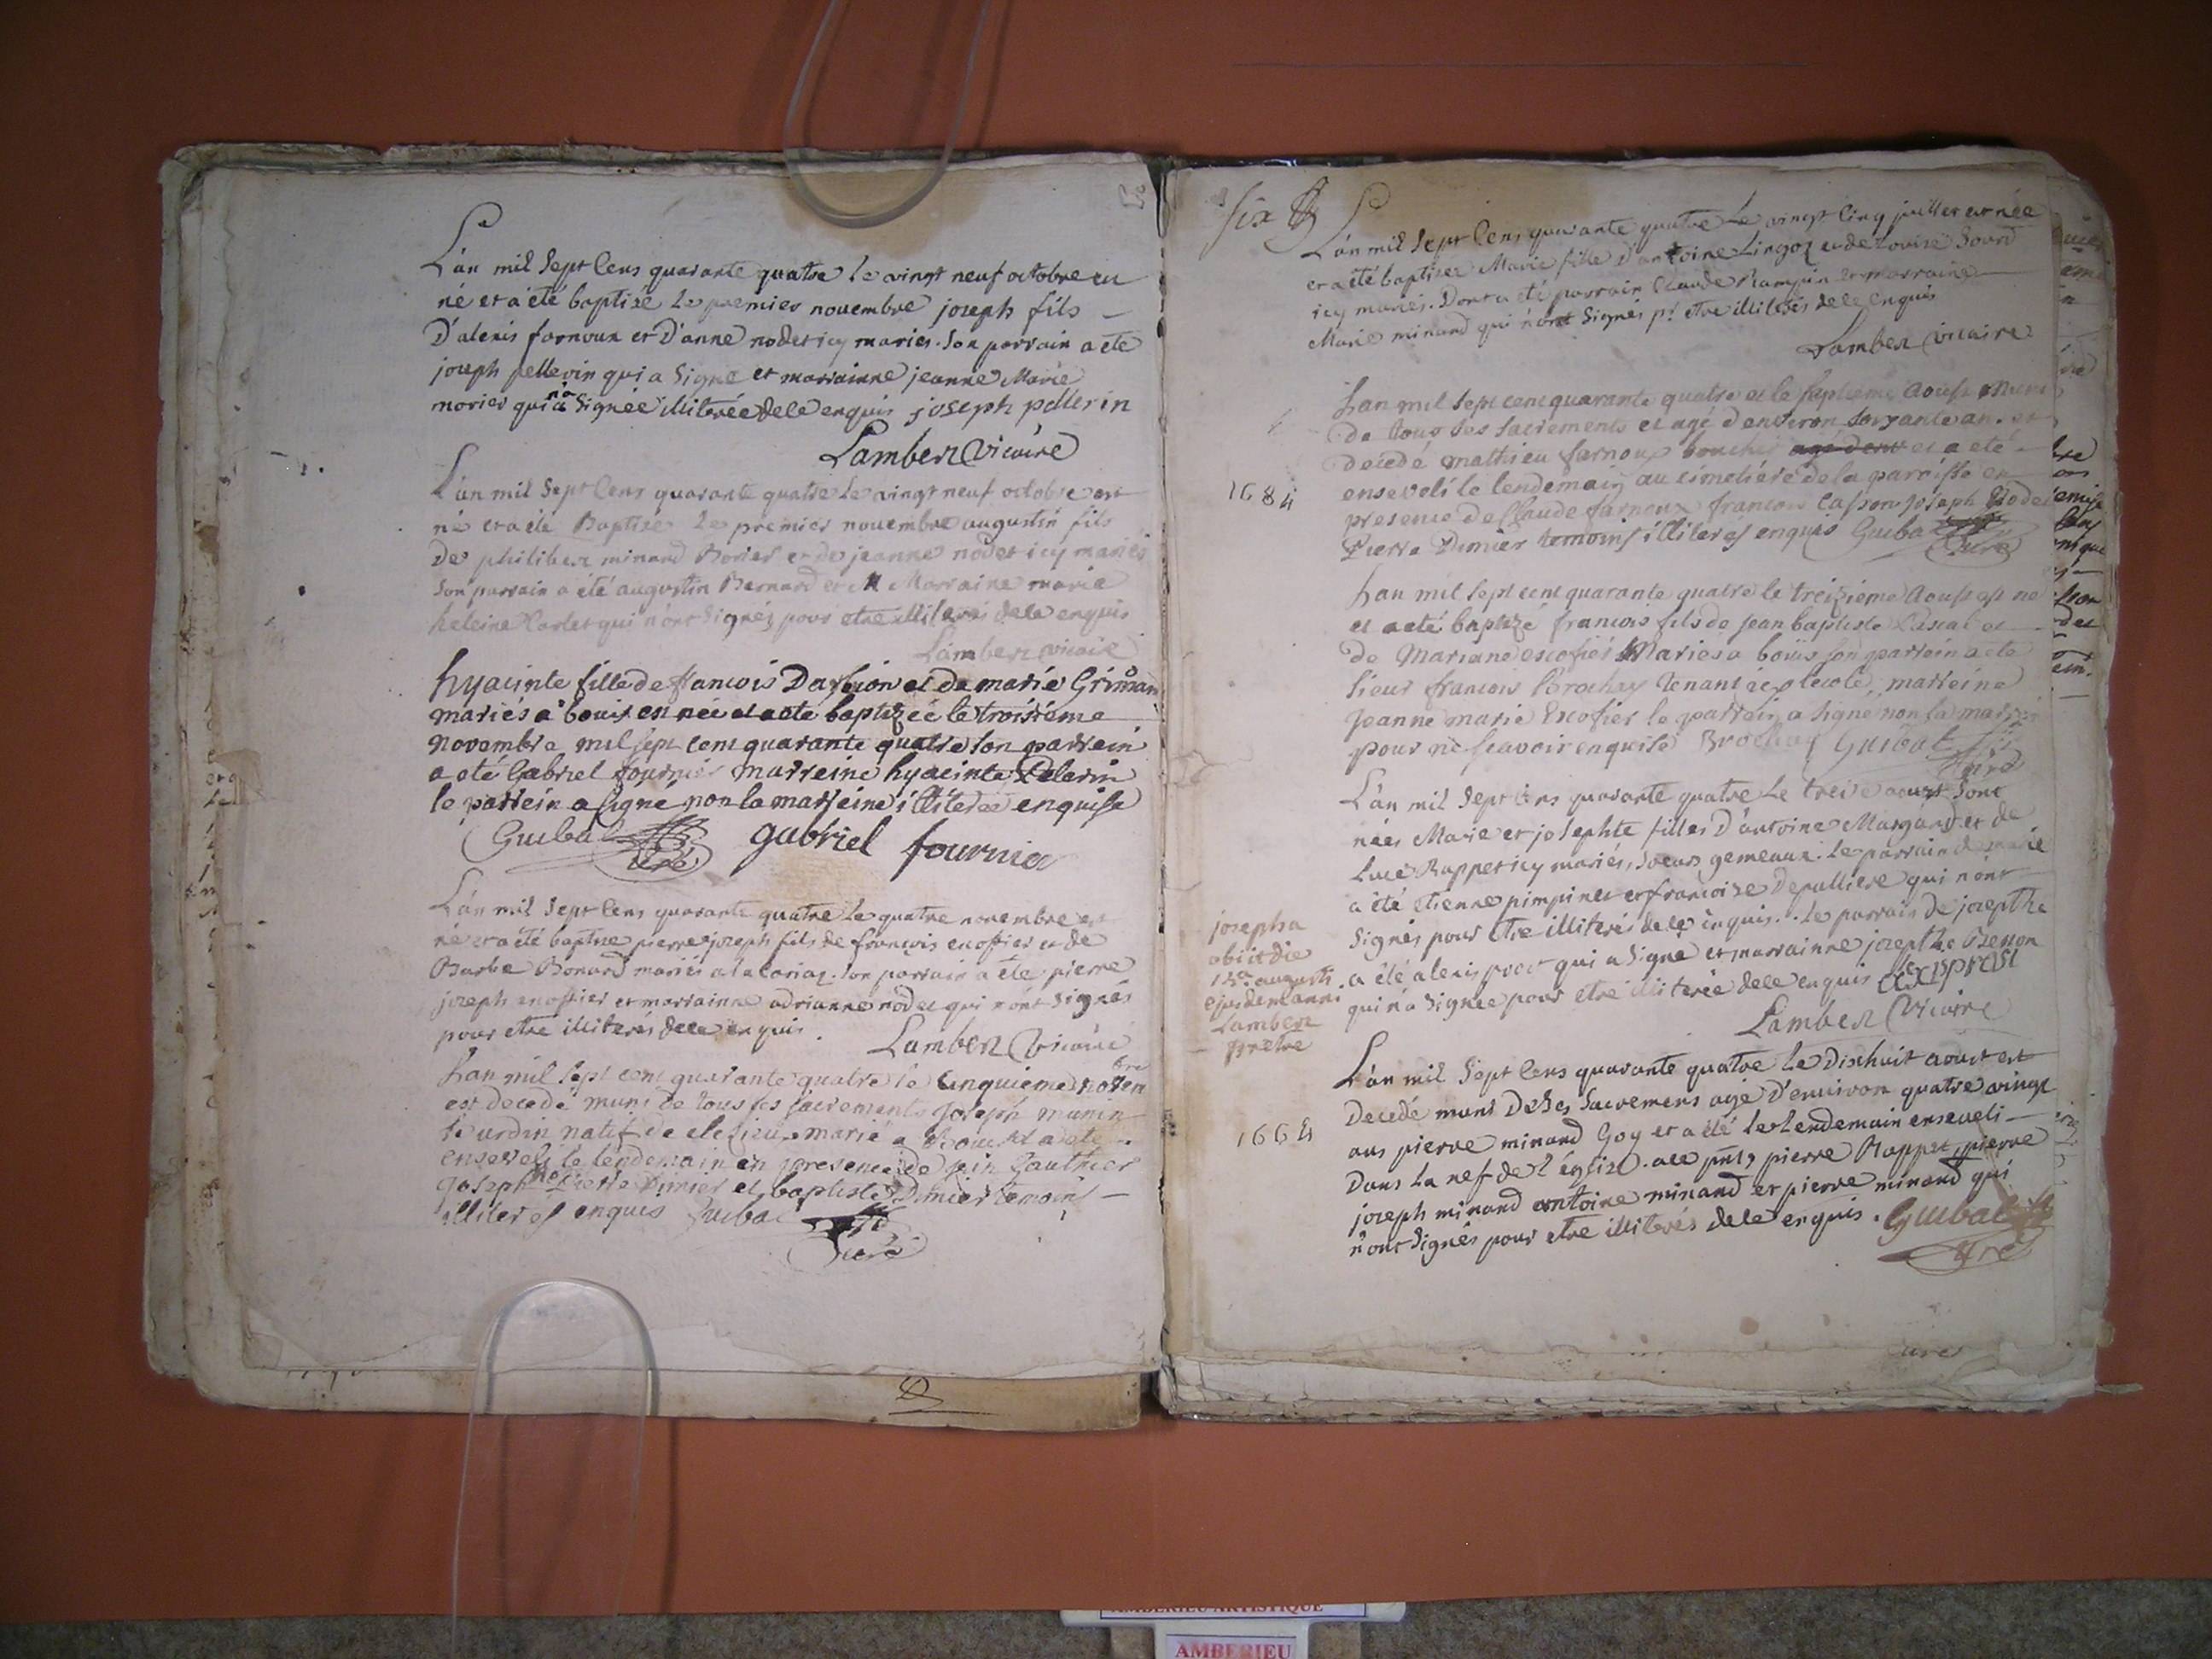 L'an mil Sept Cens quarante quatre le vingt neuf octobre est
né et a été baptisé le premier novembre joseph fils
D'alexis farnoux et D'anne nodet icy mariés. Son parrain a ete
joseph pellerin qui a Signé et marrainne jeanne Marie
morier qui n'a Signée illiterée de ce enquis joseph pellerin
Lambert Vicaire
L'an mil Sept Cens quarante quatre le vingt neuf octobre est
né et a été Baptisé le premier novembre augustin fils
De philibert minand et de jeanne nodet icy mariés
Son parrain a été augustin Bernard et Marraine marie
heleine qui n'ont Signés pour etre illiterés de ce enquis
Lambert vicaire
hyacinte fille de francois et de marie
mariés a bouis est née et a ete baptizée le troisieme
Novembre mil sept cent quarante quatre son parrein
a eté Gabriel fournier marreine hyacinte Pelerin
le parrein a signé non la marreine illiterée enquise
Guibal curé gabriel fournier
L'an mil Sept Cens quarante quatre le quatre novembre est
né et a été baptisé pierre joseph fils de francois escoffier et de
Barbe Bonard mariés a la . Son parrain a éte pierre
joseph escoffier et marrainne adrianne nodet qui n'ont Signés
pour etre illiterés de ce enquis. Lambert Vicaire
L'an mil sept cent quarante quatre le cinquieme novembre
est decedé muni de tous ses sacrements Joseph
natif de marié a et a ete
enseveli le lendemain en presence de Gauthier
Joseph Pierre Dimier et baptiste Dimier temoins
illiteres enquis Guibal
curé
six
L'an mil Sept Cens quarante quatre le vingt Cinq juillet est née
et a été baptisée Marie fille D'antoine et de Louise Sourd
icy mariés. Dont a été parrain Claude Rampin et marraine
Marie minand qui n'ont Signés pr etre illiterés de ce enquis
Lambert vicaire
L'an mil sept cent quarante quatre et le septieme Aoust muni
de tous ses sacrements et agé d'environ soixante an. est
decedé mathieu farnoux boucher et a eté
enseveli le lendemain au cimetiére de la parroisse en
1684
presence de Claude farnoux francois Casson Joseph Nodet
Pierre Dimier temoins illiteres enquis Guibal curé
L'an mil sept cent quarante quatre le treizieme Aoust est né
et a eté baptizé francois fils de Jean baptiste Pascal et
de Mariane escofier Mariés a bouis son parrein a ete
sieur francois Brochay tenant icy l'ecole, marreine
Jeanne marie Escofier le parrein a signé non la marreine
pour ne scavoir enquise Brochay Guibal
curé
L'an mil Sept Cens quarante quatre le treize aoust sont
nées Marie et josephte filles D'antoine Margand et de
Luce Rappet icy mariés, Soeurs gemeaux. Le parrain de marie
a été etienne pimpinet et francoise Depalliere qui n'ont
Signés pour etre illiterés de ce enquis. Le parrain de josepthe
josepha
obiit die
15a augusti
ejusdem anni
Lambert
prêtre
a été alexis prost qui a Signé et marrainne josepthe Besson
qui n'a Signée pour etre illiterée de ce enquis alexis prost
Lambert Vicaire
L'an mil Sept Cens quarante quatre le Dixhuit aoust est
Decedé muni De Ses Sacremens agé D'environ quatre vingt
1664
ans pierre minand Goy et a été le lendemain enseveli
Dans la nef de l'église. ace pnts pierre Rappet, pierre
joseph minand antoine minand et pierre minand qui
n'ont Signés pour etre illiterés de ce enquis. Guibal
curé
AMBERIEU ARTISTIQUE
AMBERIEU